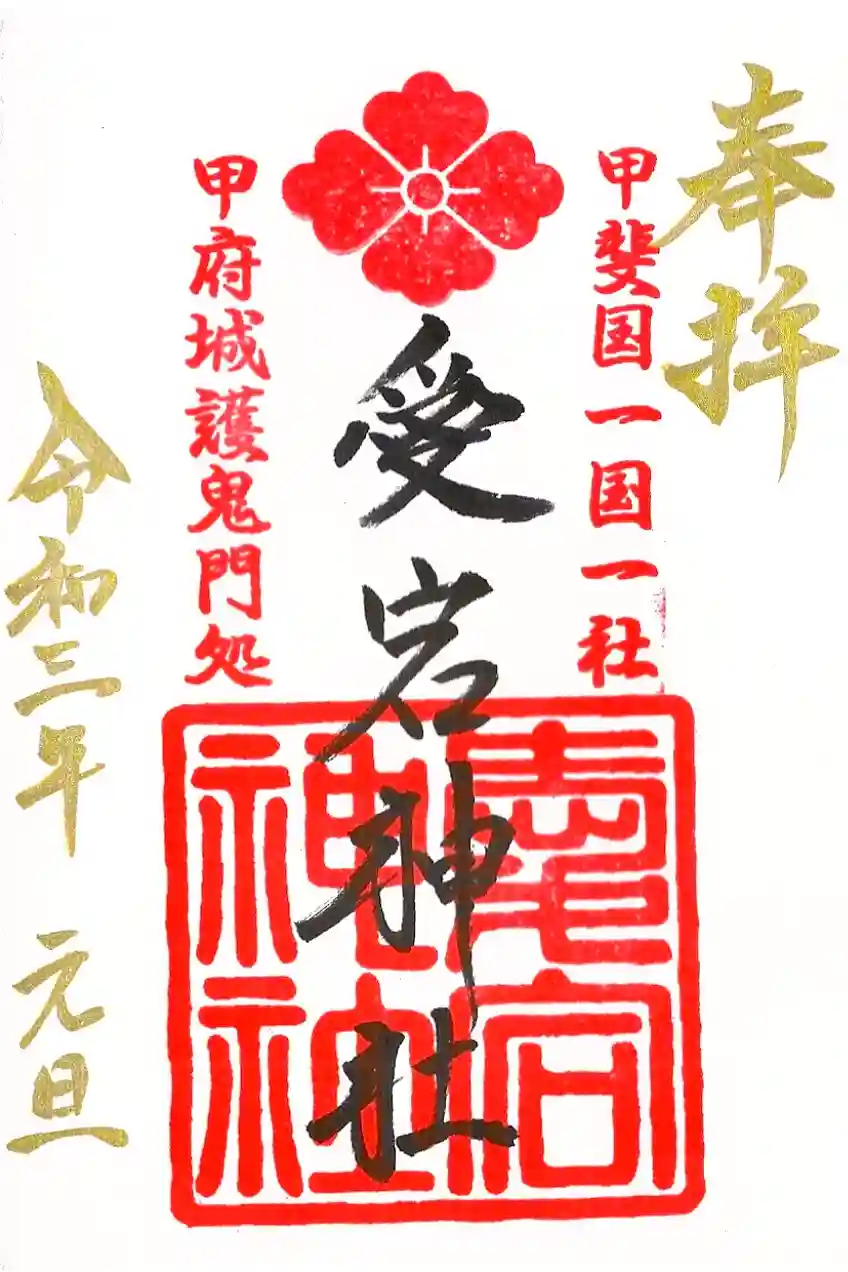 奉拝
甲斐国一国一社
愛宕神社
愛宕神社
甲府城護鬼門処
令和三年 元旦